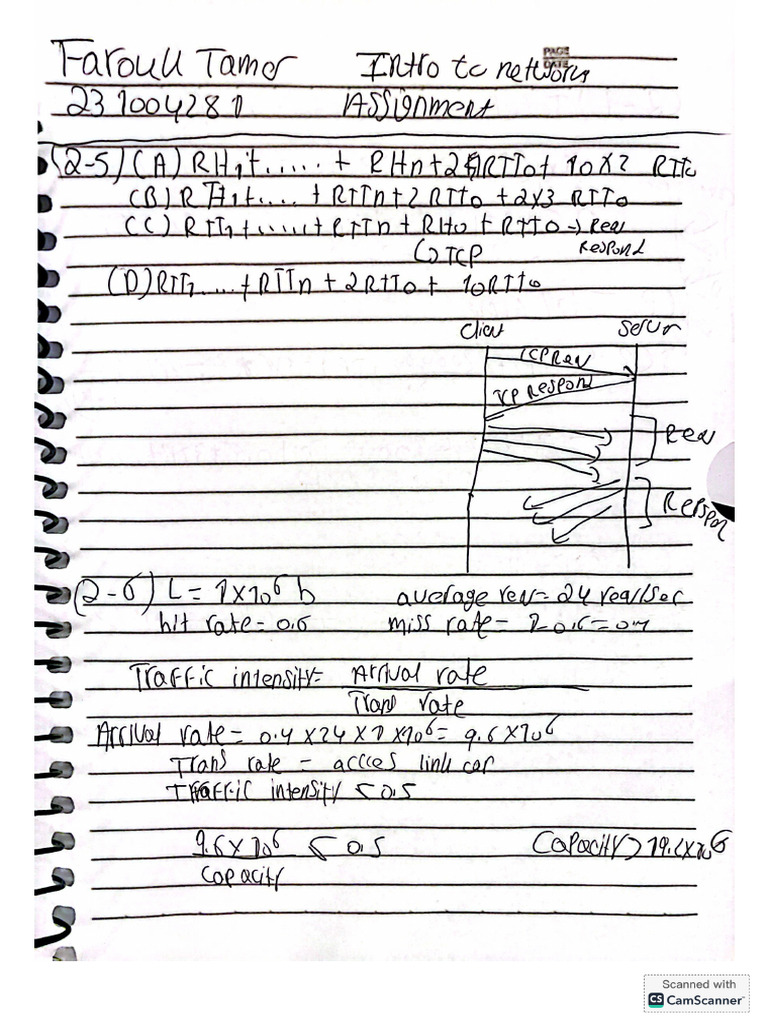 Farouk Tamer Intro to networks
PAGE
DATE
231004281 Assignment
(2-5) (A) RTT1+......+ RTTn+2RTT0+ 10x2 RTT0
(B) RTT1+.....+RTTn+2 RTT0 +2x3 RTT0
(C) RTT1+......+RTTn+RTT0 +RTT0 → Req
↳TCP Respond
(D) RTT1.....+RTTn + 2RTT0 + 10RTT0
Client Server
TCP Req
TCP Respond
Req
Respon
(2-6) L = 1x10^6 b average req = 24 req/sec
hit rate = 0.6 miss rate = 1-0.6=0.4
Traffic intensity = Arrival rate
Trans rate
Arrival rate = 0.4 x24 x 1 x10^6 = 9.6 x10^6
Trans rate = acces link cap
Traffic intensity < 0.5
9.6 x 10^6 < 0.5 Capacity > 19.2x10^6
Capacity
Scanned with
CS CamScanner